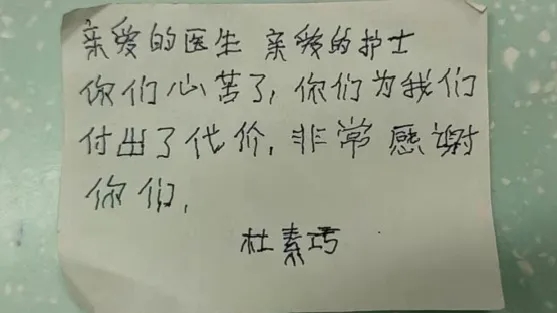 亲爱的医生 亲爱的护士
你们心苦了,你们为我们
付出了代价,非常感谢
你们,
杜素巧